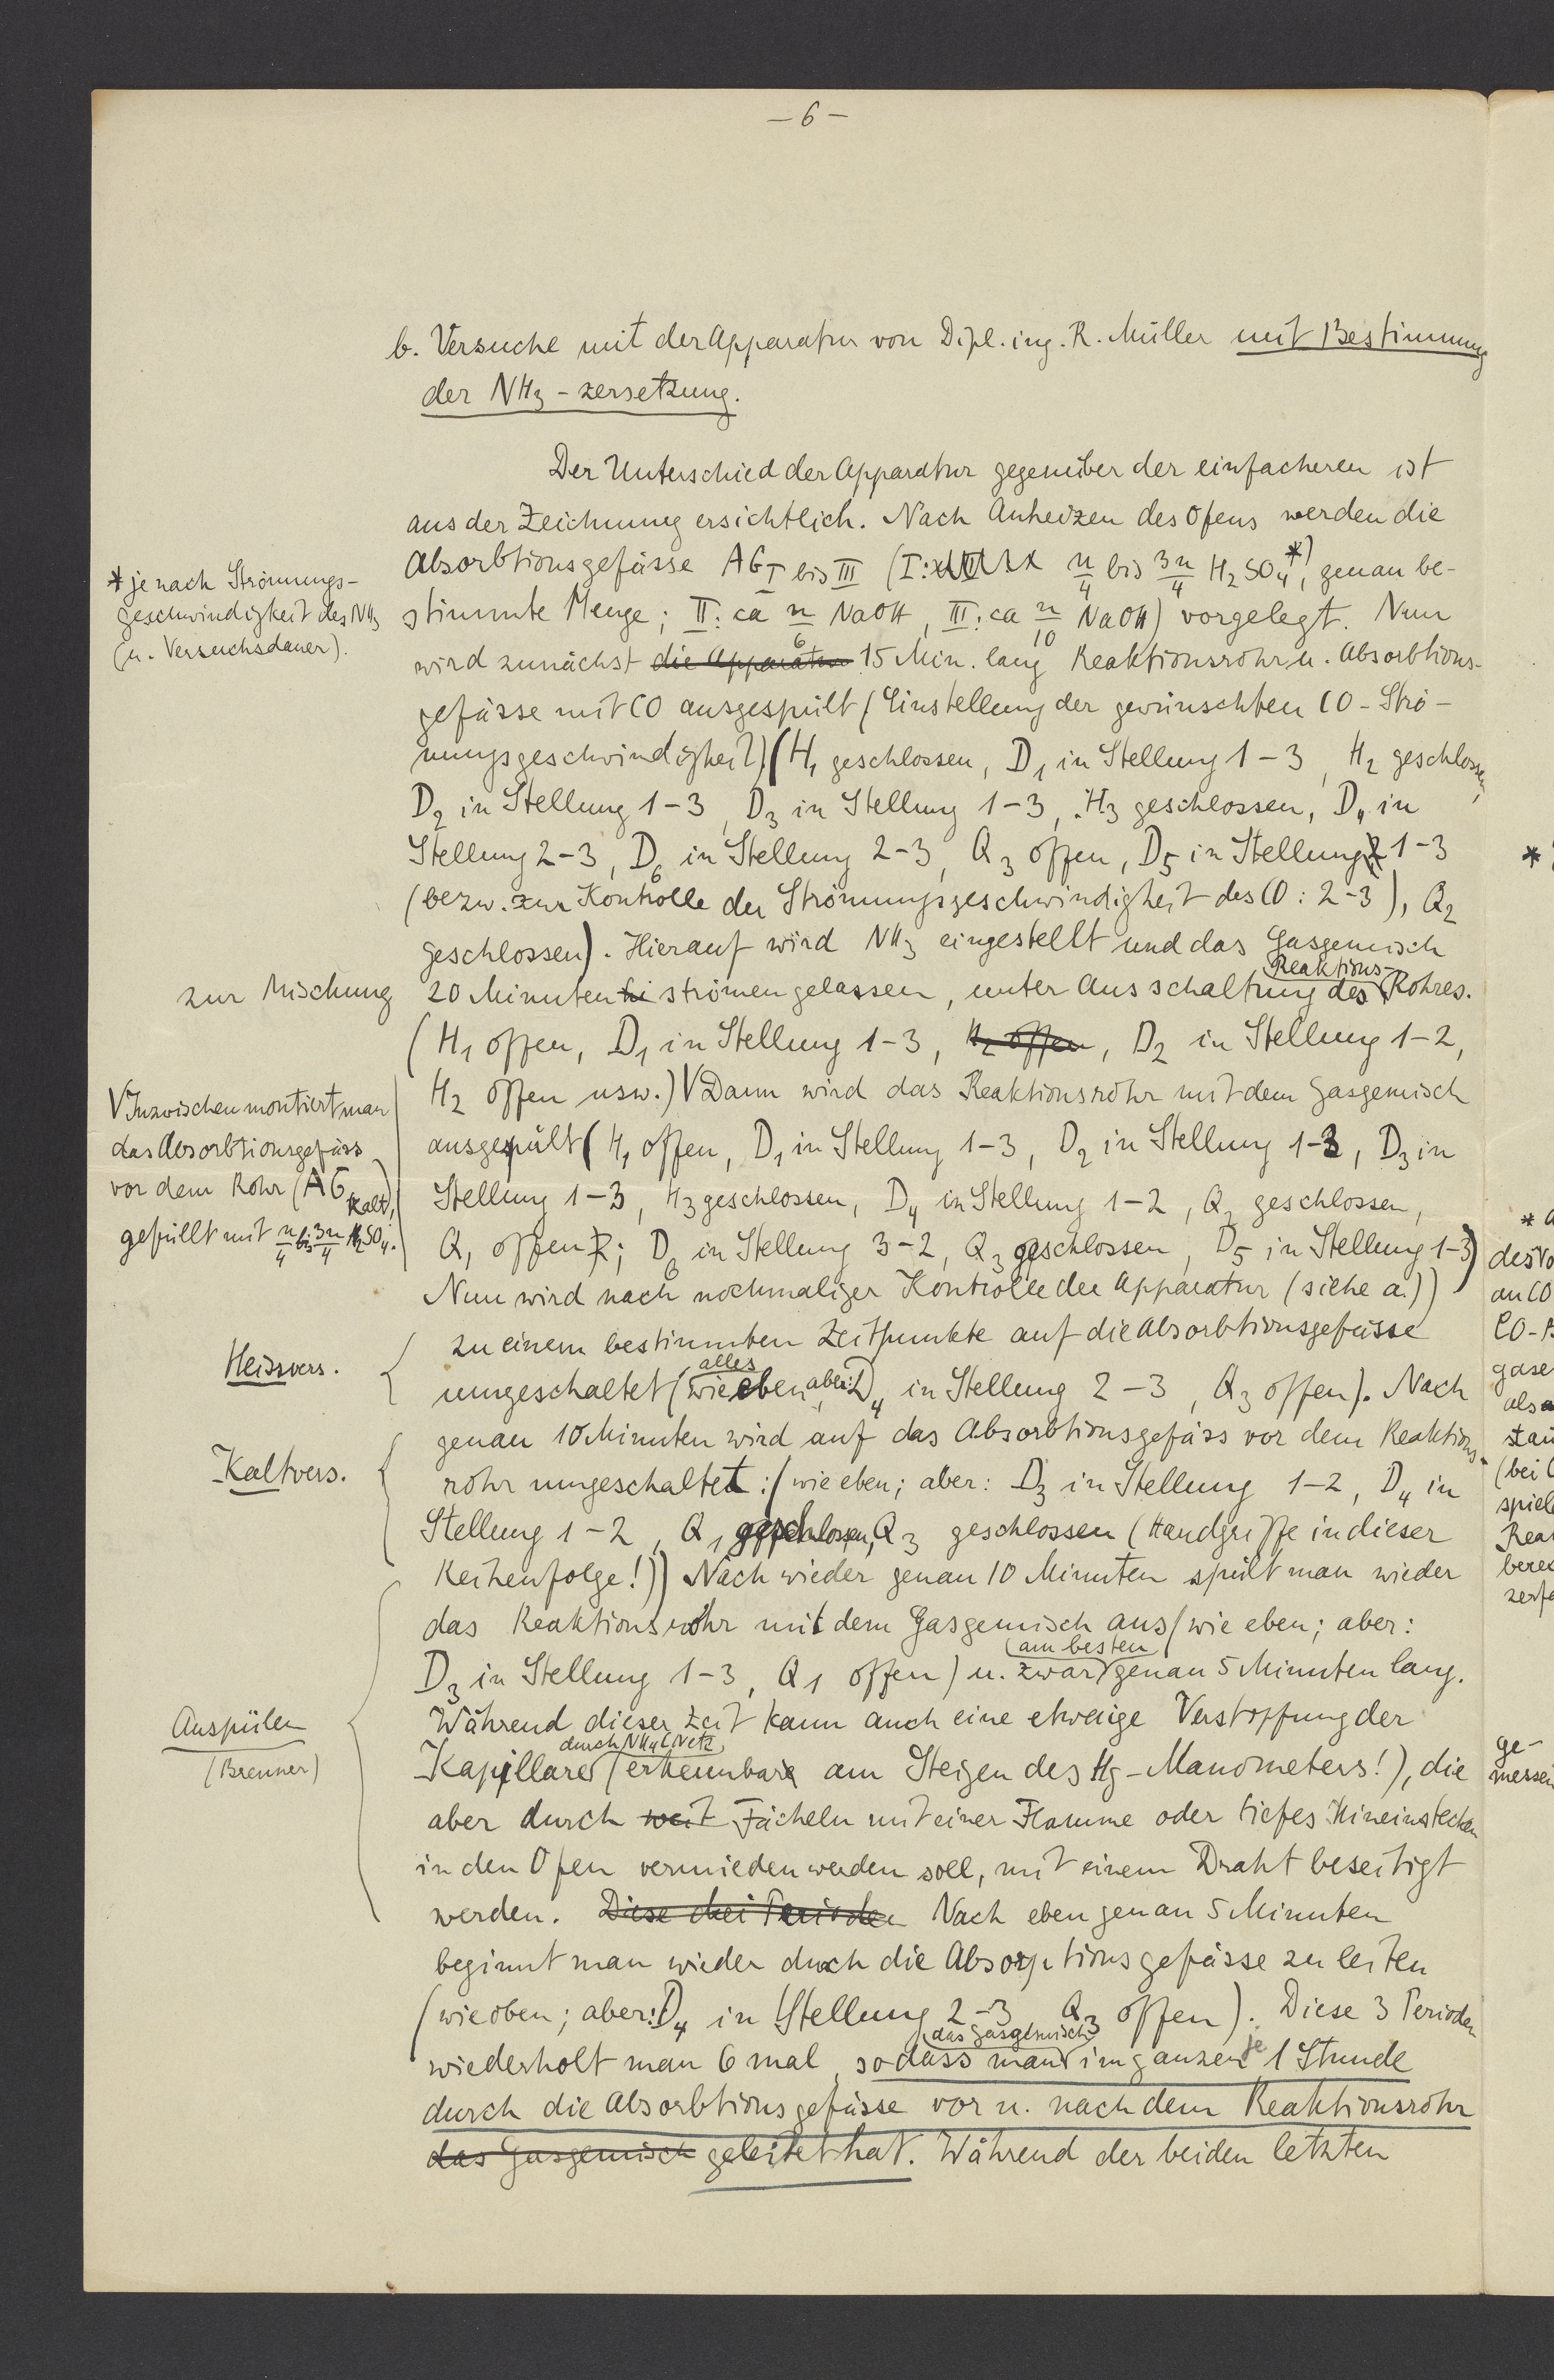 — 6 —
b. Versuche mit der Apparatur von Dipl. ing. R. Müller mit Bestimmung
der NH3-zersetzung.
Der Unterschied der Apparatur gegenüber der einfacheren ist
aus der Zeichnung ersichtlich. Nach Anheizen des Ofens werden die
Absorbtionsgefässe AG I bis III (I: n/4 bis 3n/4 H2SO4*), genau be-
stimmte Menge; II: ca n/6 NaOH, III: ca n/10 NaOH) vorgelegt. Nun
wird zunächst die Apparatur 15 Min. lang Reaktionsrohr u. Absorbtions-
gefässe mit CO ausgespült (Einstellung der gewünschten CO-Strö-
mungsgeschwindigkeit) (H1 geschlossen, D1 in Stellung 1-3, H2 geschlossen,
D2 in Stellung 1-3, D3 in Stellung 1-3, H3 geschlossen, D4 in
Stellung 2-3, D6 in Stellung 2-3, Q3 offen, D5 in Stellung 1-3
(bezw. zur Kontrolle der Strömungsgeschwindigkeit des CO: 2-3), Q2
geschlossen). Hierauf wird NH3 eingestellt und das Gasgemisch
20 Minuten strömen gelassen, unter Ausschaltung des Reaktions-Rohres.
(H1 offen, D1 in Stellung 1-3, H2 offen, D2 in Stellung 1-2,
H2 offen usw.) V Dann wird das Reaktionsrohr mit dem Gasgemisch
ausgespült (H1 offen, D1 in Stellung 1-3, D2 in Stellung 1-3, D3 in
Stellung 1-3, H3 geschlossen, D4 in Stellung 1-2, Q2 geschlossen,
Q1 offen; D6 in Stellung 3-2, Q3 geschlossen, D5 in Stellung 1-3)
Nun wird nach nochmaliger Kontrolle der Apparatur (siehe a.))
zu einem bestimmten Zeitpunkte auf die Absorbtionsgefässe
umgeschaltet (alles wie eben, aber: D4 in Stellung 2-3, Q3 offen). Nach
genau 10 Minuten wird auf das Absorbtionsgefäss vor dem Reaktions-
rohr umgeschaltet: (wie eben; aber: D3 in Stellung 1-2, D4 in
Stellung 1-2, Q1 geschlossen, Q3 geschlossen (Handgriffe in dieser
Reihenfolge!)) Nach wieder genau 10 Minuten spült man wieder
das Reaktionsrohr mit dem Gasgemisch aus (wie eben; aber:
D3 in Stellung 1-3, Q1 offen) u. zwar am besten genau 5 Minuten lang.
Während dieser Zeit kann auch eine etwaige Verstopfung der
Kapillare durch NH4 (erkennbar am Steigen des Hg-Manometers!), die
aber durch weit Fächeln mit einer Flamme oder tiefes Hineinstecken
in den Ofen vermieden werden soll, mit einem Draht beseitigt
werden. Diese drei Perioden Nach eben genau 5 Minuten
beginnt man wieder durch die Absorptionsgefässe zu leiten
(wie oben; aber: D4 in Stellung 2-3 Q3 offen). Diese 3 Perioden
wiederholt man 6 mal, sodass man das Gasgemisch im ganzen je 1 Stunde
durch die Absorbtionsgefässe vor u. nach dem Reaktionsrohr
das Gasgemisch geleitet hat. Während der beiden letzten
* je nach Strömungs-
geschwindigkeit des NH3
(u. Versuchsdauer).
zur Mischung
V Inzwischen montiert man
das Absorbtionsgefäss
vor dem Rohr (AG kalt),
gefüllt mit n/4 bis 3n/4 H2SO4.
Heissvers.
Kaltvers.
Auspülen
(Brenner)
*
* a
des Vo
an CO
CO-
gase
als
stau
(bei
spiel
Reak
bere
zerfa
ge-
messen